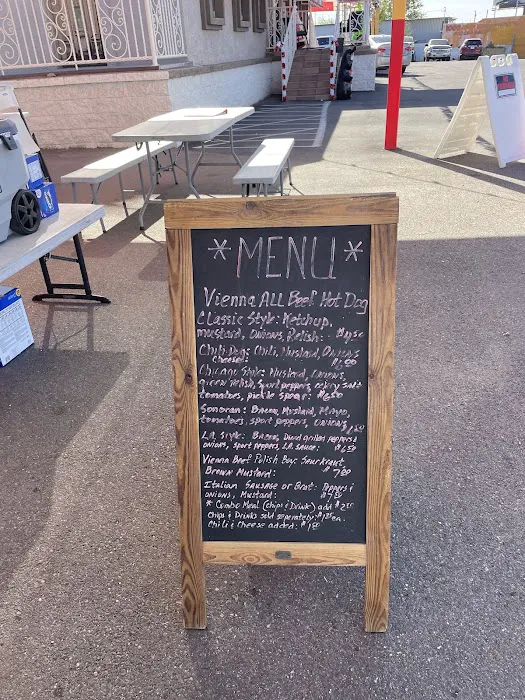 * MENU *
Vienna ALL Beef Hot Dog
Classic Style: Ketchup,
mustard, Onions, Relish:
Chili Dog: Chili, Mustard, Onions
cheese:
Chicago Style: Mustard, Onions,
green relish, sport peppers, celery salt
tomatoes, pickle spear: $6.50
Sonoran: Bacon, Mustard, Mayo,
tomatoes, sport peppers, onions, 6.50
L.A. Style: Bacon, Diced grilled peppers &
onions, sport peppers, L.A. sauce: $6.50
Vienna Beef Polish Boy: Sauerkraut,
Brown Mustard:
Italian Sausage or Brat: Peppers &
onions, Mustard:
* Combo Meal (chips & Drink) add
Chips & Drinks sold seperately: ea.
Chili & Cheese added: